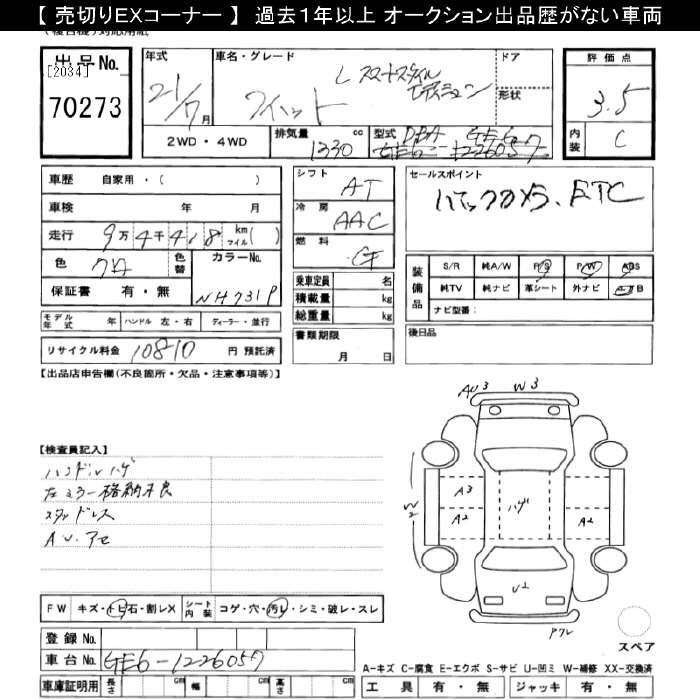 【 売切りEXコーナー 】 過去1年以上 オークション出品歴がない車両
出品No.
[2034]
70273
年式
21/7月
車名・グレード
L スマートスタイル
エディション
フィット
ドア
形状
評価点
3.5
内装
C
2WD・4WD
排気量
1330 cc
型式
DBA GE6
GE6-1226057
車歴 自家用・( )
車検 年 月
走行 9万4千418 km マイル( )
色 クロ
色替
カラーNo.
NH731P
保証書 有・無
シフト
AT
冷房
AAC
燃料
G
乗車定員 名
積載量 kg
総重量 kg
書類期限
月 日
セールスポイント
バックカメラ、ETC
装備品
S/R 純A/W P/S P/W ABS
純TV 純ナビ 革シート 外ナビ エアB
ナビ型番:
後日品
モデル年式 年 ハンドル 左・右 ディーラー・並行
リサイクル料金 10810 円 預託済
【出品店申告欄(不良箇所・欠品・注意事項等)】
【検査員記入】
ハンドルハゲ
左ミラー格納不良
スタッドレス
AU.アセ
AU3
W3
W2
A3
A2
ハゲ
A2
U2
アワレ
スペア
FW キズ・トビ石・割レX シート内装 コゲ・穴・汚レ・シミ・破レ・スレ
登録 No.
車台 No. GE6-1226057
車庫証明用 長さ cm 幅 cm 高さ cm
A-キズ C-腐食 E-エクボ S-サビ U-凹ミ W-補修 XX-交換済
工具 有・無 ジャッキ 有・無